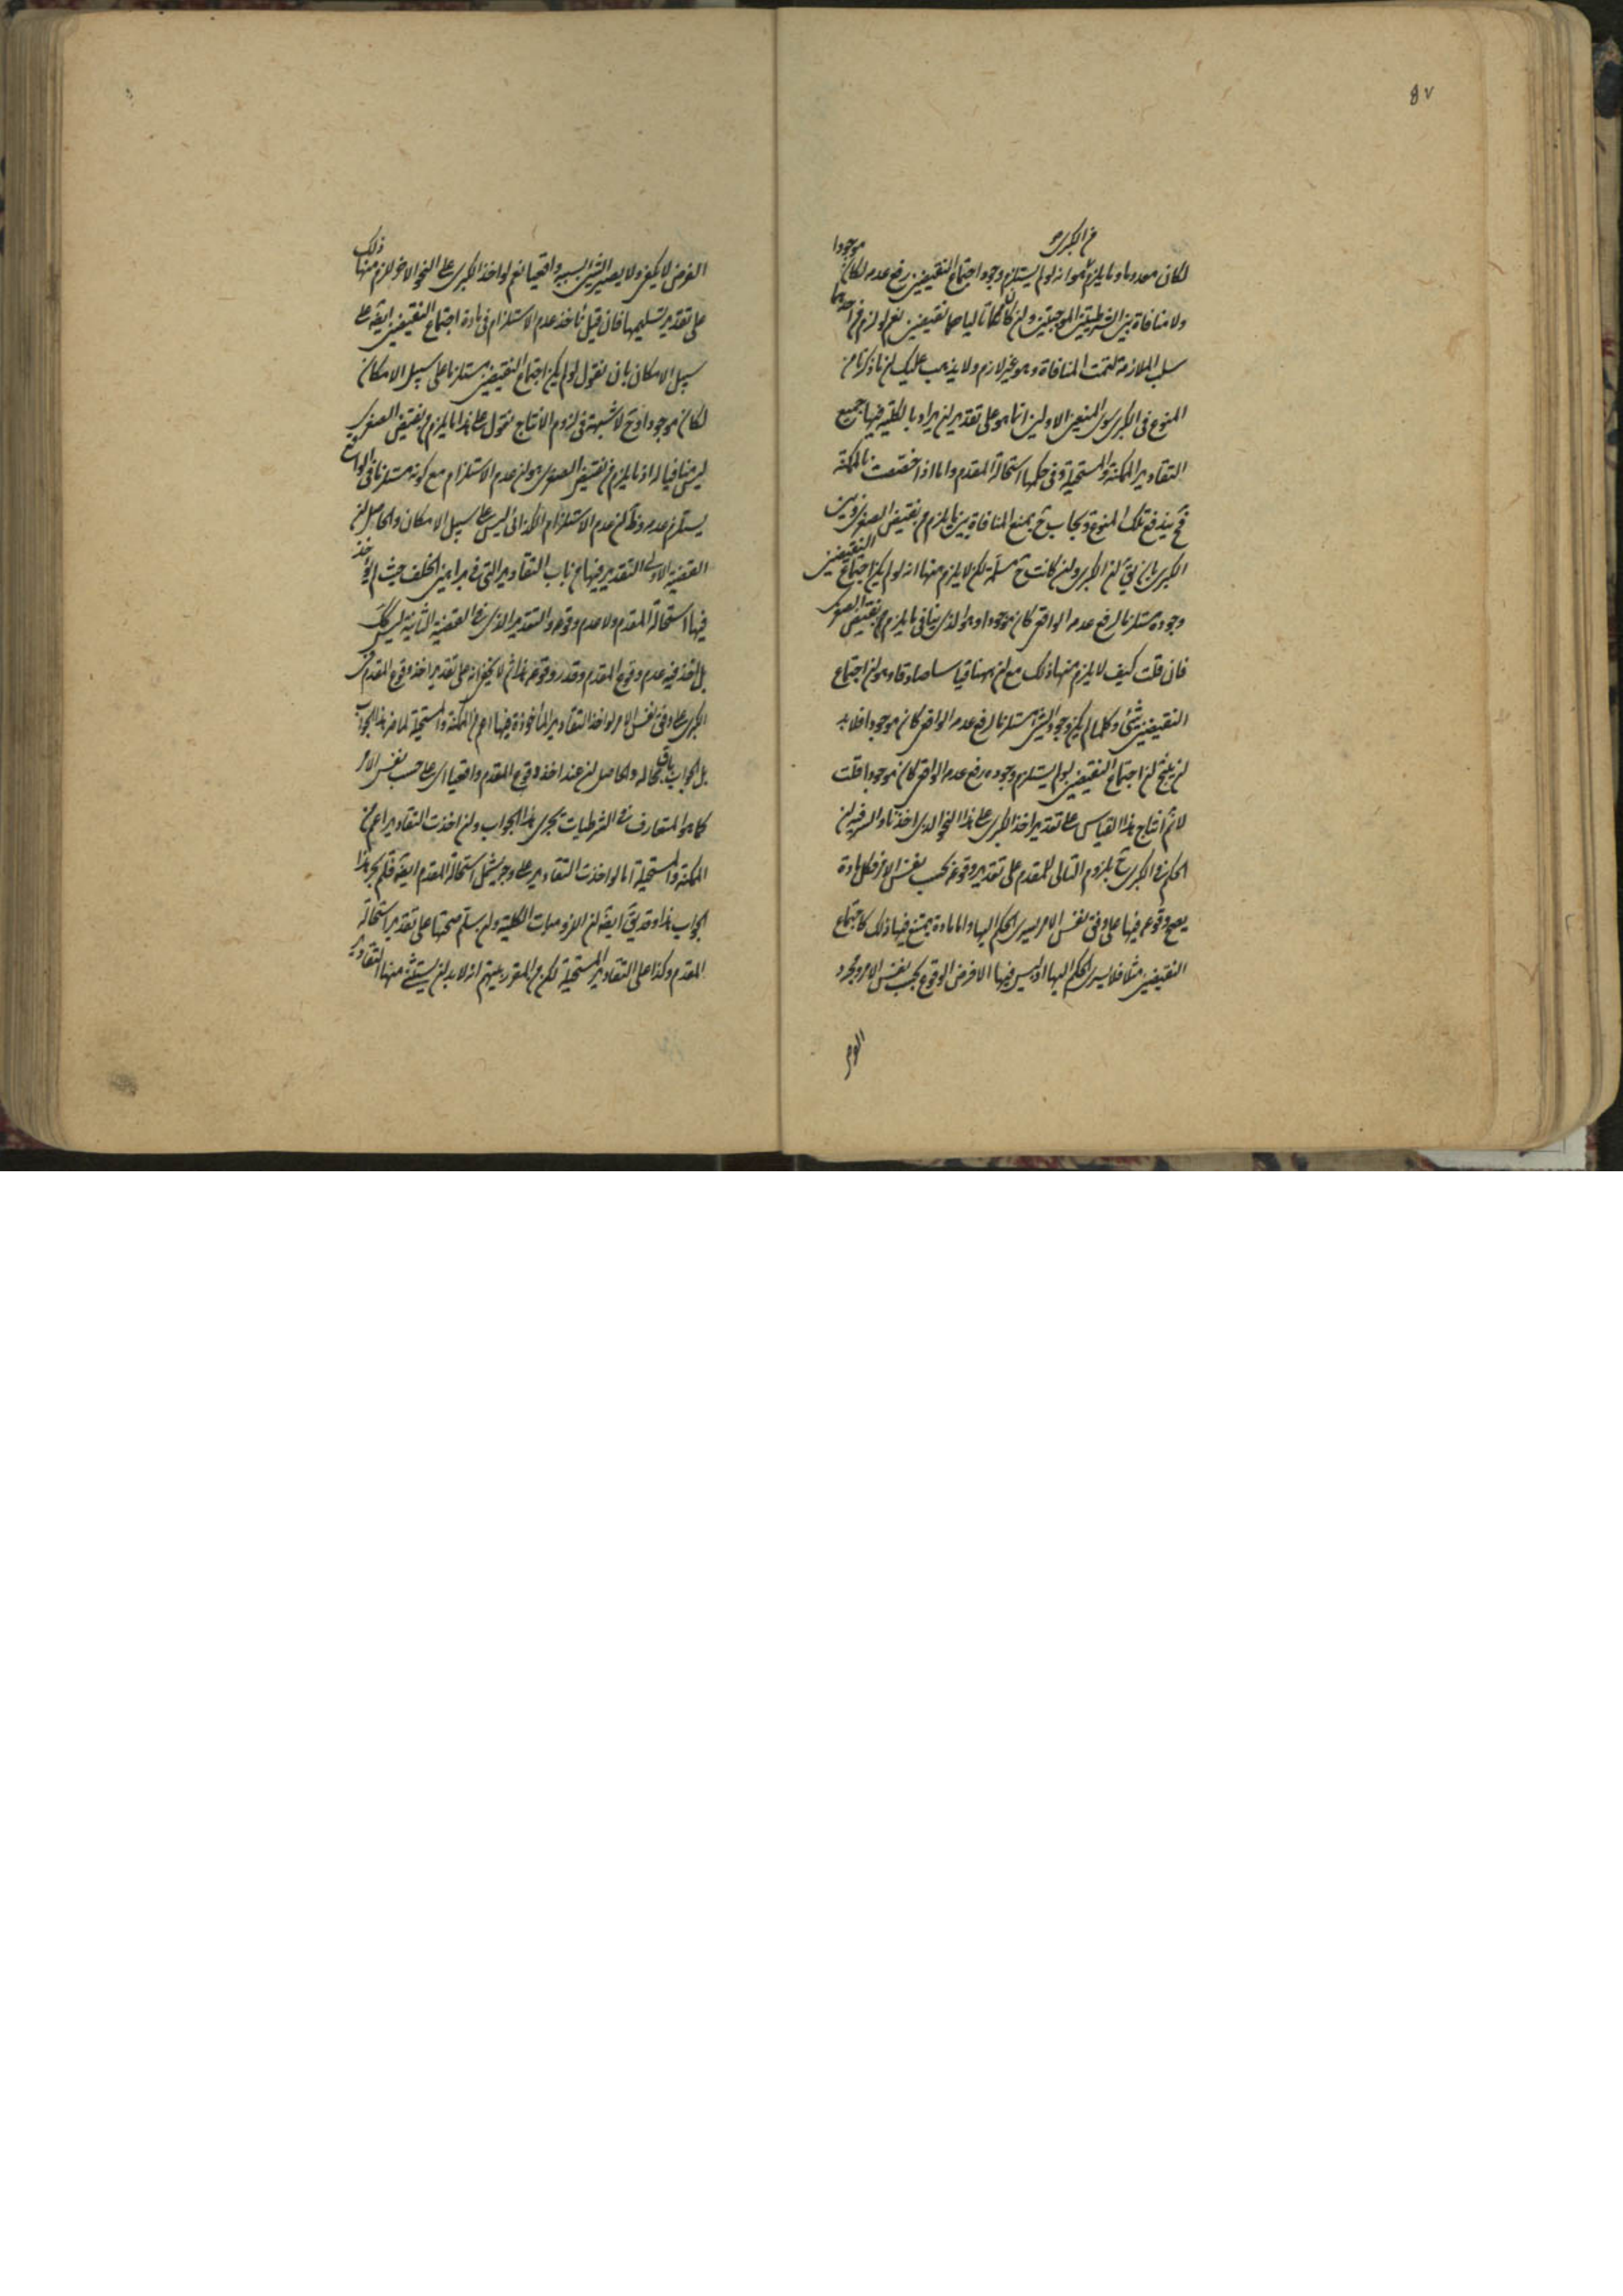 ٨٧
من الكبرى
لكان معدوما وما يلزم هو انه لو لم يستلزم وجود اجتماع النقيضين رفع عدمه لكان موجودا
ولا منافاة بين الشرطيتين الموجبتين وان كان تالياهما نقيضين نعم لو لزم من احدهما
سلب الملازمة لتمت المنافاة وهو غير لازم ولا يذهب عليك ان ما ذكرنا من
المنوع فى الكبرى سوى المنعين الاولين انما هو على تقدير ان يراد بالكلية فيها جميع
التقادير الممكنة والمستحيلة وفى حكمها استحالة المقدم واما اذا خصصت بالممكنة
فح يندفع تلك المنوع ويجاب ح بمنع المنافاة بين ما يلزم من نقيض الصغرى وبين
الكبرى بان يق ان الكبرى وان كانت ح مسلمة لكن لا يلزم منها انه لو لم يكن اجتماع النقيضين
وجوده مستلزما لرفع عدمه الواقعى كان موجودا وهو الذى ينافى ما يلزم من نقيض الصغرى
فان قلت كيف لا يلزم منها ذلك مع ان ههنا قياسا صادقا وهو ان اجتماع
النقيضين شئ وكلما لم يكن وجود الشئ مستلزما لرفع عدمه الواقعى كان موجودا فلا بد
ان ينتج ان اجتماع النقيضين لو لم يستلزم وجوده رفع عدمه الواقعى كان موجودا قلت
لا نم انتاج هذا القياس على تقدير اخذ الكبرى على هذا النحو الذى اخذنا والسر فيه ان
الحكم فى الكبرى ح بلزوم التالى للمقدم على تقدير وقوعه بحسب نفس الامر فكل مادة
يصح وقوعه فيها على وفق نفس الامر يسرى الحكم اليها واما مادة يمتنع فيها ذلك كاجتماع
النقيضين مثلا فلا يسرى الحكم اليها اذ ليس فيها الا فرض الوقوع بحسب نفس الامر ومجرد
الفرض لا يكفى ولا يصير الشئ بسببه واقعيا نعم لو اخذ الكبرى على النحو الاخر لزم منها ذلك
على تقدير تسليمها فان قيل ناخذ عدم الاستلزام فى مادة اجتماع النقيضين ايضه على
سبيل الامكان بان نقول لو لم يكن اجتماع النقيضين مستلزما على سبيل الامكان
لكان موجودا وح لا شبهة فى لزوم الانتاج نقول على هذا ما يلزم من نقيض الصغرى
ليس منافيا له اذ ما يلزم من نقيض الصغرى هو ان عدم الاستلزام مع كونه مستلزما فى الواقع
يستلزم عدمه وظ ان عدم الاستلزام الكذائى ليس على سبيل الامكان والحاصل ان
القضية الاولى التقدير فيها من باب التقادير التى فى براهين الخلف حيث لم يؤخذ
فيها استحالة المقدم ولا عدم وقوعه والتقدير الذى فى القضية الثانية ليس كك
بل اخذ فيه عدم وقوع المقدم وقدر وقوعه هذا ثم لا يخفى انه على تقدير اخذ وقوع المقدم فى
الكبرى على وفق نفس الامر لو اخذ التقادير المأخوذة فيها اعم من الممكنة والمستحيلة لما ضر هذا الجواب
بل الجواب باق بحاله والحاصل ان عند اخذ وقوع المقدم واقعيا اى على حسب نفس الامر
كما هو المتعارف فى الشرطيات يجرى هذا الجواب وان اخذت التقادير اعم من
الممكنة والمستحيلة اما لو اخذت التقادير على وجه يشمل استحالة المقدم ايضه فلم يجر هذا
الجواب هذا وقد يق ايضه ان اللزوميات الكلية وان يسلم صحتها على تقدير استحالة
المقدم وكذا على التقادير المستحيلة لكن من المقرر بينهم انه لا بد ان يستثنى منها التقادير